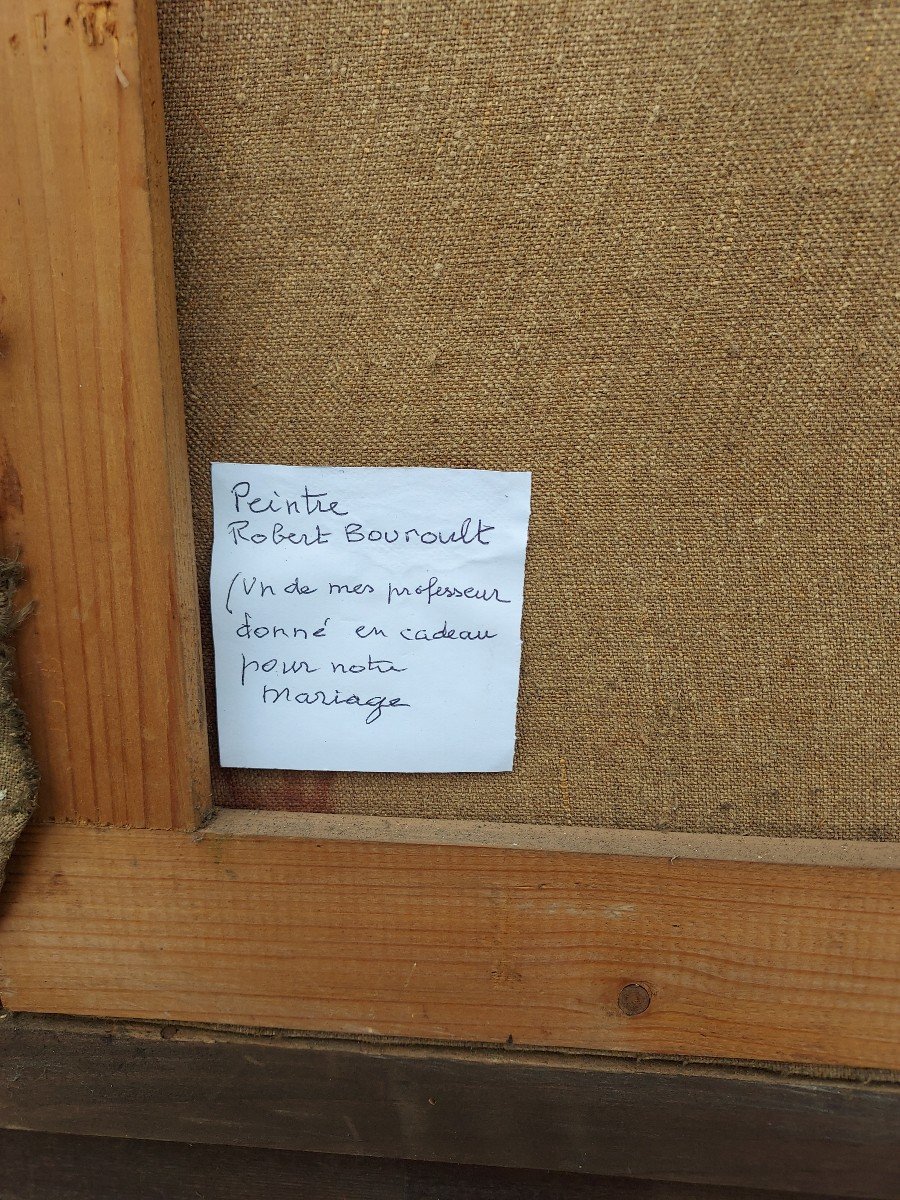 Peintre
Robert Bouroult
(Un de mes professeur
donné en cadeau
pour notre
Mariage